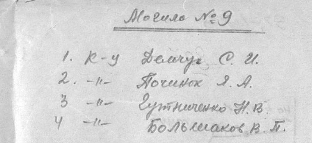 Могила №9
1. К-ц Демчук С. И.
2. -"- Починок Я. А.
3 -"- Гутниченко Н. В
4 -"- Большаков В. П.